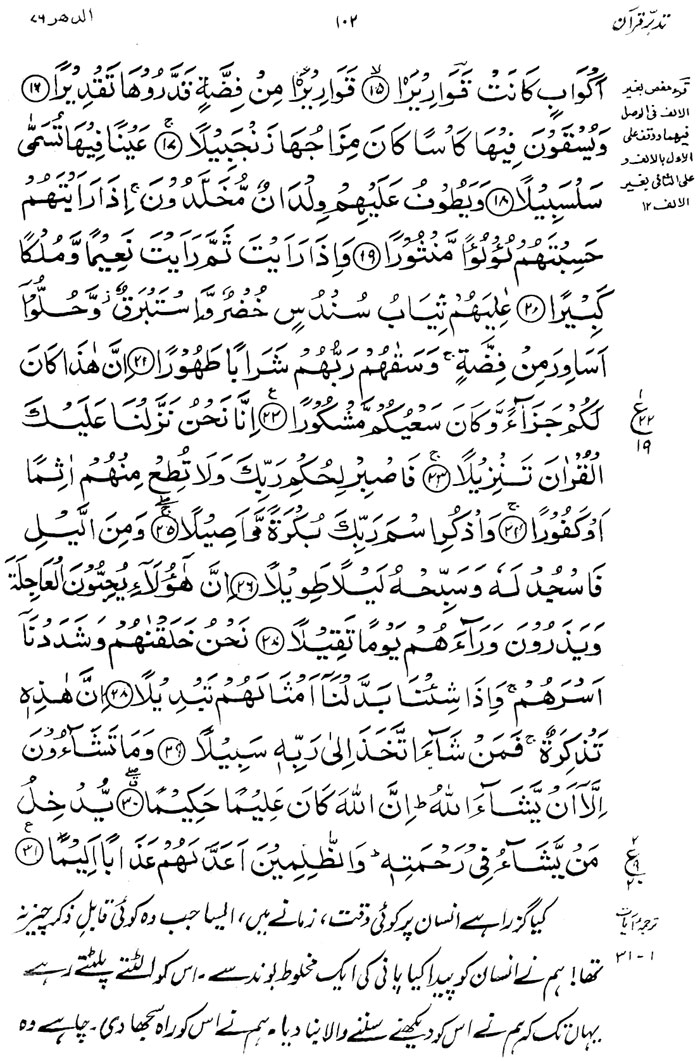 تدبّرِ قرآن ۱۰۲ الدھر ۷۶
اَكْوَابٍ كَانَتْ قَوَارِيْرَا۟ ﴿۱۵﴾ قَوَارِيْرَا۟ مِنْ فِضَّةٍ قَدَّرُوْهَا تَقْدِيْرًا ﴿۱۶﴾
وَيُسْقَوْنَ فِيْهَا كَاْسًا كَانَ مِزَاجُهَا زَنْجَبِيْلًا ﴿۱۷﴾ عَيْنًا فِيْهَا تُسَمّٰى
سَلْسَبِيْلًا ﴿۱۸﴾ وَيَطُوْفُ عَلَيْهِمْ وِلْدَانٌ مُّخَلَّدُوْنَ ۚ اِذَا رَاَيْتَهُمْ
حَسِبْتَهُمْ لُؤْلُؤًا مَّنْثُوْرًا ﴿۱۹﴾ وَاِذَا رَاَيْتَ ثَمَّ رَاَيْتَ نَعِيْمًا وَّمُلْكًا
كَبِيْرًا ﴿۲۰﴾ عٰلِيَهُمْ ثِيَابُ سُنْدُسٍ خُضْرٌ وَّاِسْتَبْرَقٌ ۖ وَّحُلُّوْٓا
اَسَاوِرَ مِنْ فِضَّةٍ ۚ وَسَقٰهُمْ رَبُّهُمْ شَرَابًا طَهُوْرًا ﴿۲۱﴾ اِنَّ هٰذَا كَانَ
لَكُمْ جَزَآءً وَّكَانَ سَعْيُكُمْ مَّشْكُوْرًا ﴿۲۲﴾ اِنَّا نَحْنُ نَزَّلْنَا عَلَيْكَ
الْقُرْاٰنَ تَنْزِيْلًا ﴿۲۳﴾ فَاصْبِرْ لِحُكْمِ رَبِّكَ وَلَا تُطِعْ مِنْهُمْ اٰثِمًا
اَوْ كَفُوْرًا ﴿۲۴﴾ وَاذْكُرِ اسْمَ رَبِّكَ بُكْرَةً وَّاَصِيْلًا ﴿۲۵﴾ وَمِنَ الَّيْلِ
فَاسْجُدْ لَهٗ وَسَبِّحْهُ لَيْلًا طَوِيْلًا ﴿۲۶﴾ اِنَّ هٰٓؤُلَآءِ يُحِبُّوْنَ الْعَاجِلَةَ
وَيَذَرُوْنَ وَرَآءَهُمْ يَوْمًا ثَقِيْلًا ﴿۲۷﴾ نَحْنُ خَلَقْنٰهُمْ وَشَدَدْنَآ
اَسْرَهُمْ ۚ وَاِذَا شِئْنَا بَدَّلْنَآ اَمْثَالَهُمْ تَبْدِيْلًا ﴿۲۸﴾ اِنَّ هٰذِهٖ
تَذْكِرَةٌ ۚ فَمَنْ شَآءَ اتَّخَذَ اِلٰى رَبِّهٖ سَبِيْلًا ﴿۲۹﴾ وَمَا تَشَآءُوْنَ
اِلَّآ اَنْ يَّشَآءَ اللّٰهُ ؕ اِنَّ اللّٰهَ كَانَ عَلِيْمًا حَكِيْمًا ﴿۳۰﴾ يُّدْخِلُ
مَنْ يَّشَآءُ فِيْ رَحْمَتِهٖ ؕ وَالظّٰلِمِيْنَ اَعَدَّ لَهُمْ عَذَابًا اَلِيْمًا ﴿۳۱﴾
قرء حفص بغير
الالف فى الوصل
فيهما ووقف على
الاول بالالف و
على الثانى بغير
الالف ۱۲
۱
ع
۲۲
۱۹
۲
ع
۹
۲۰
ترجمہ آیات
۱-۳۱
کیا گزرا ہے انسان پر کوئی وقت، زمانے میں، ایسا جب وہ کوئی قابلِ ذکر چیز نہ
تھا! ہم نے انسان کو پیدا کیا پانی کی ایک مخلوط بوند سے۔ اس کو الٹتے پلٹتے رہے
یہاں تک کہ ہم نے اس کو دیکھنے سننے والا بنا دیا۔ ہم نے اس کو راہ سجھا دی۔ چاہے وہ